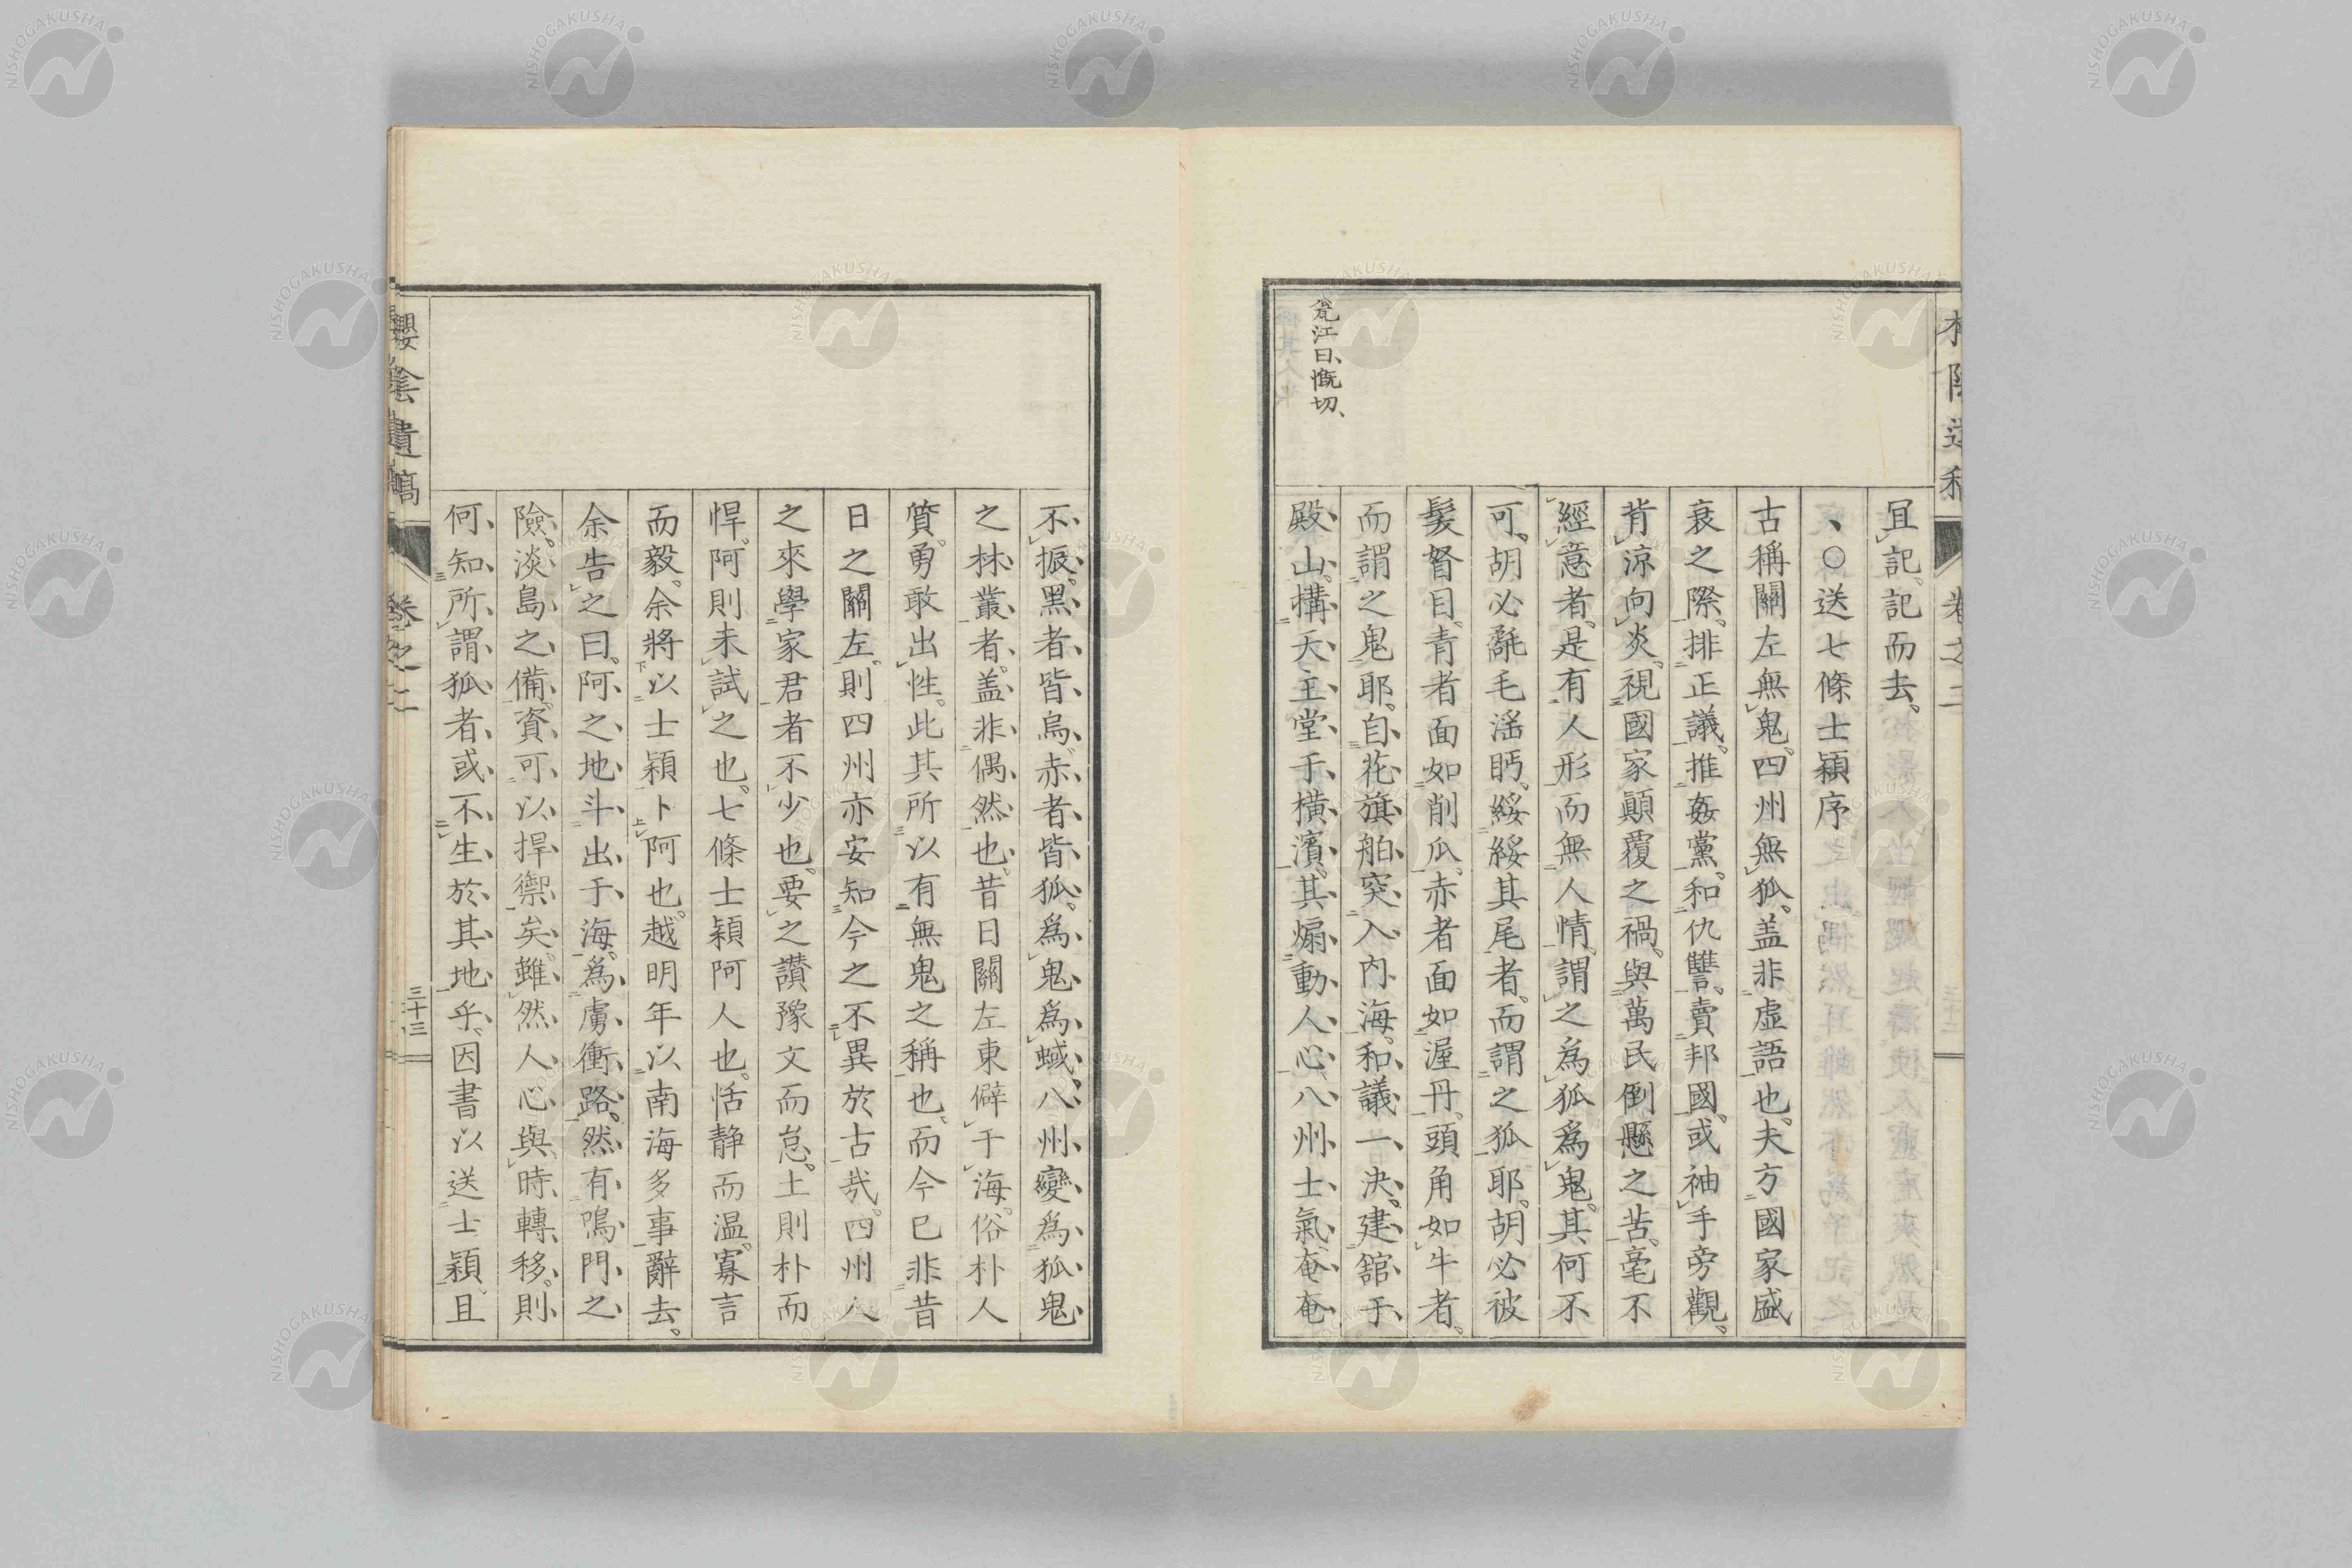 宜記。記而去。
、○送七條士穎序
古稱關左無鬼。四州無狐。盖非虛語也。夫方國家盛
衰之際。排正議。推姦黨。和仇讐。賣邦國。或袖手旁觀。
背涼向炎。視國家顚覆之禍。與萬民倒懸之苦。毫不
經意者。是有人形而無人情。謂之為狐為鬼。其何不
可。胡必毵毛滛眄。綏綏其尾者。而謂之狐耶。胡必被
髮瞀目。青者面如削瓜。赤者面如渥丹。頭角如牛者。
而謂之鬼耶。自花旗舶突入內海。和議一決。建舘于
殿山。搆天主堂于橫濱。其煽動人心。八州士氣奄奄
甕江曰、慨切、
不振。黑者皆烏。赤者皆狐。為鬼為蜮。八州變為狐鬼
之林叢者。盖非偶然也。昔日關左東僻于海。俗朴人
質。勇敢出性。此其所以有無鬼之稱也。而今已非昔
日之關左。則四州亦安知今之不異於古哉。四州人
之來學家君者不少也。要之讃豫文而怠。土則朴而
悍。阿則未試之也。七條士穎阿人也。恬靜而温。寡言
而毅。余將以士穎卜阿也。越明年以南海多事辭去。
余告之曰。阿之地斗出于海。為虜衝路。然有鳴門之
險。淡島之備。資可以捍禦矣。雖然人心與時轉移。則
何知所謂狐者或不生於其地乎。因書以送士穎。且
櫻陰遺稿
卷之二
三十三